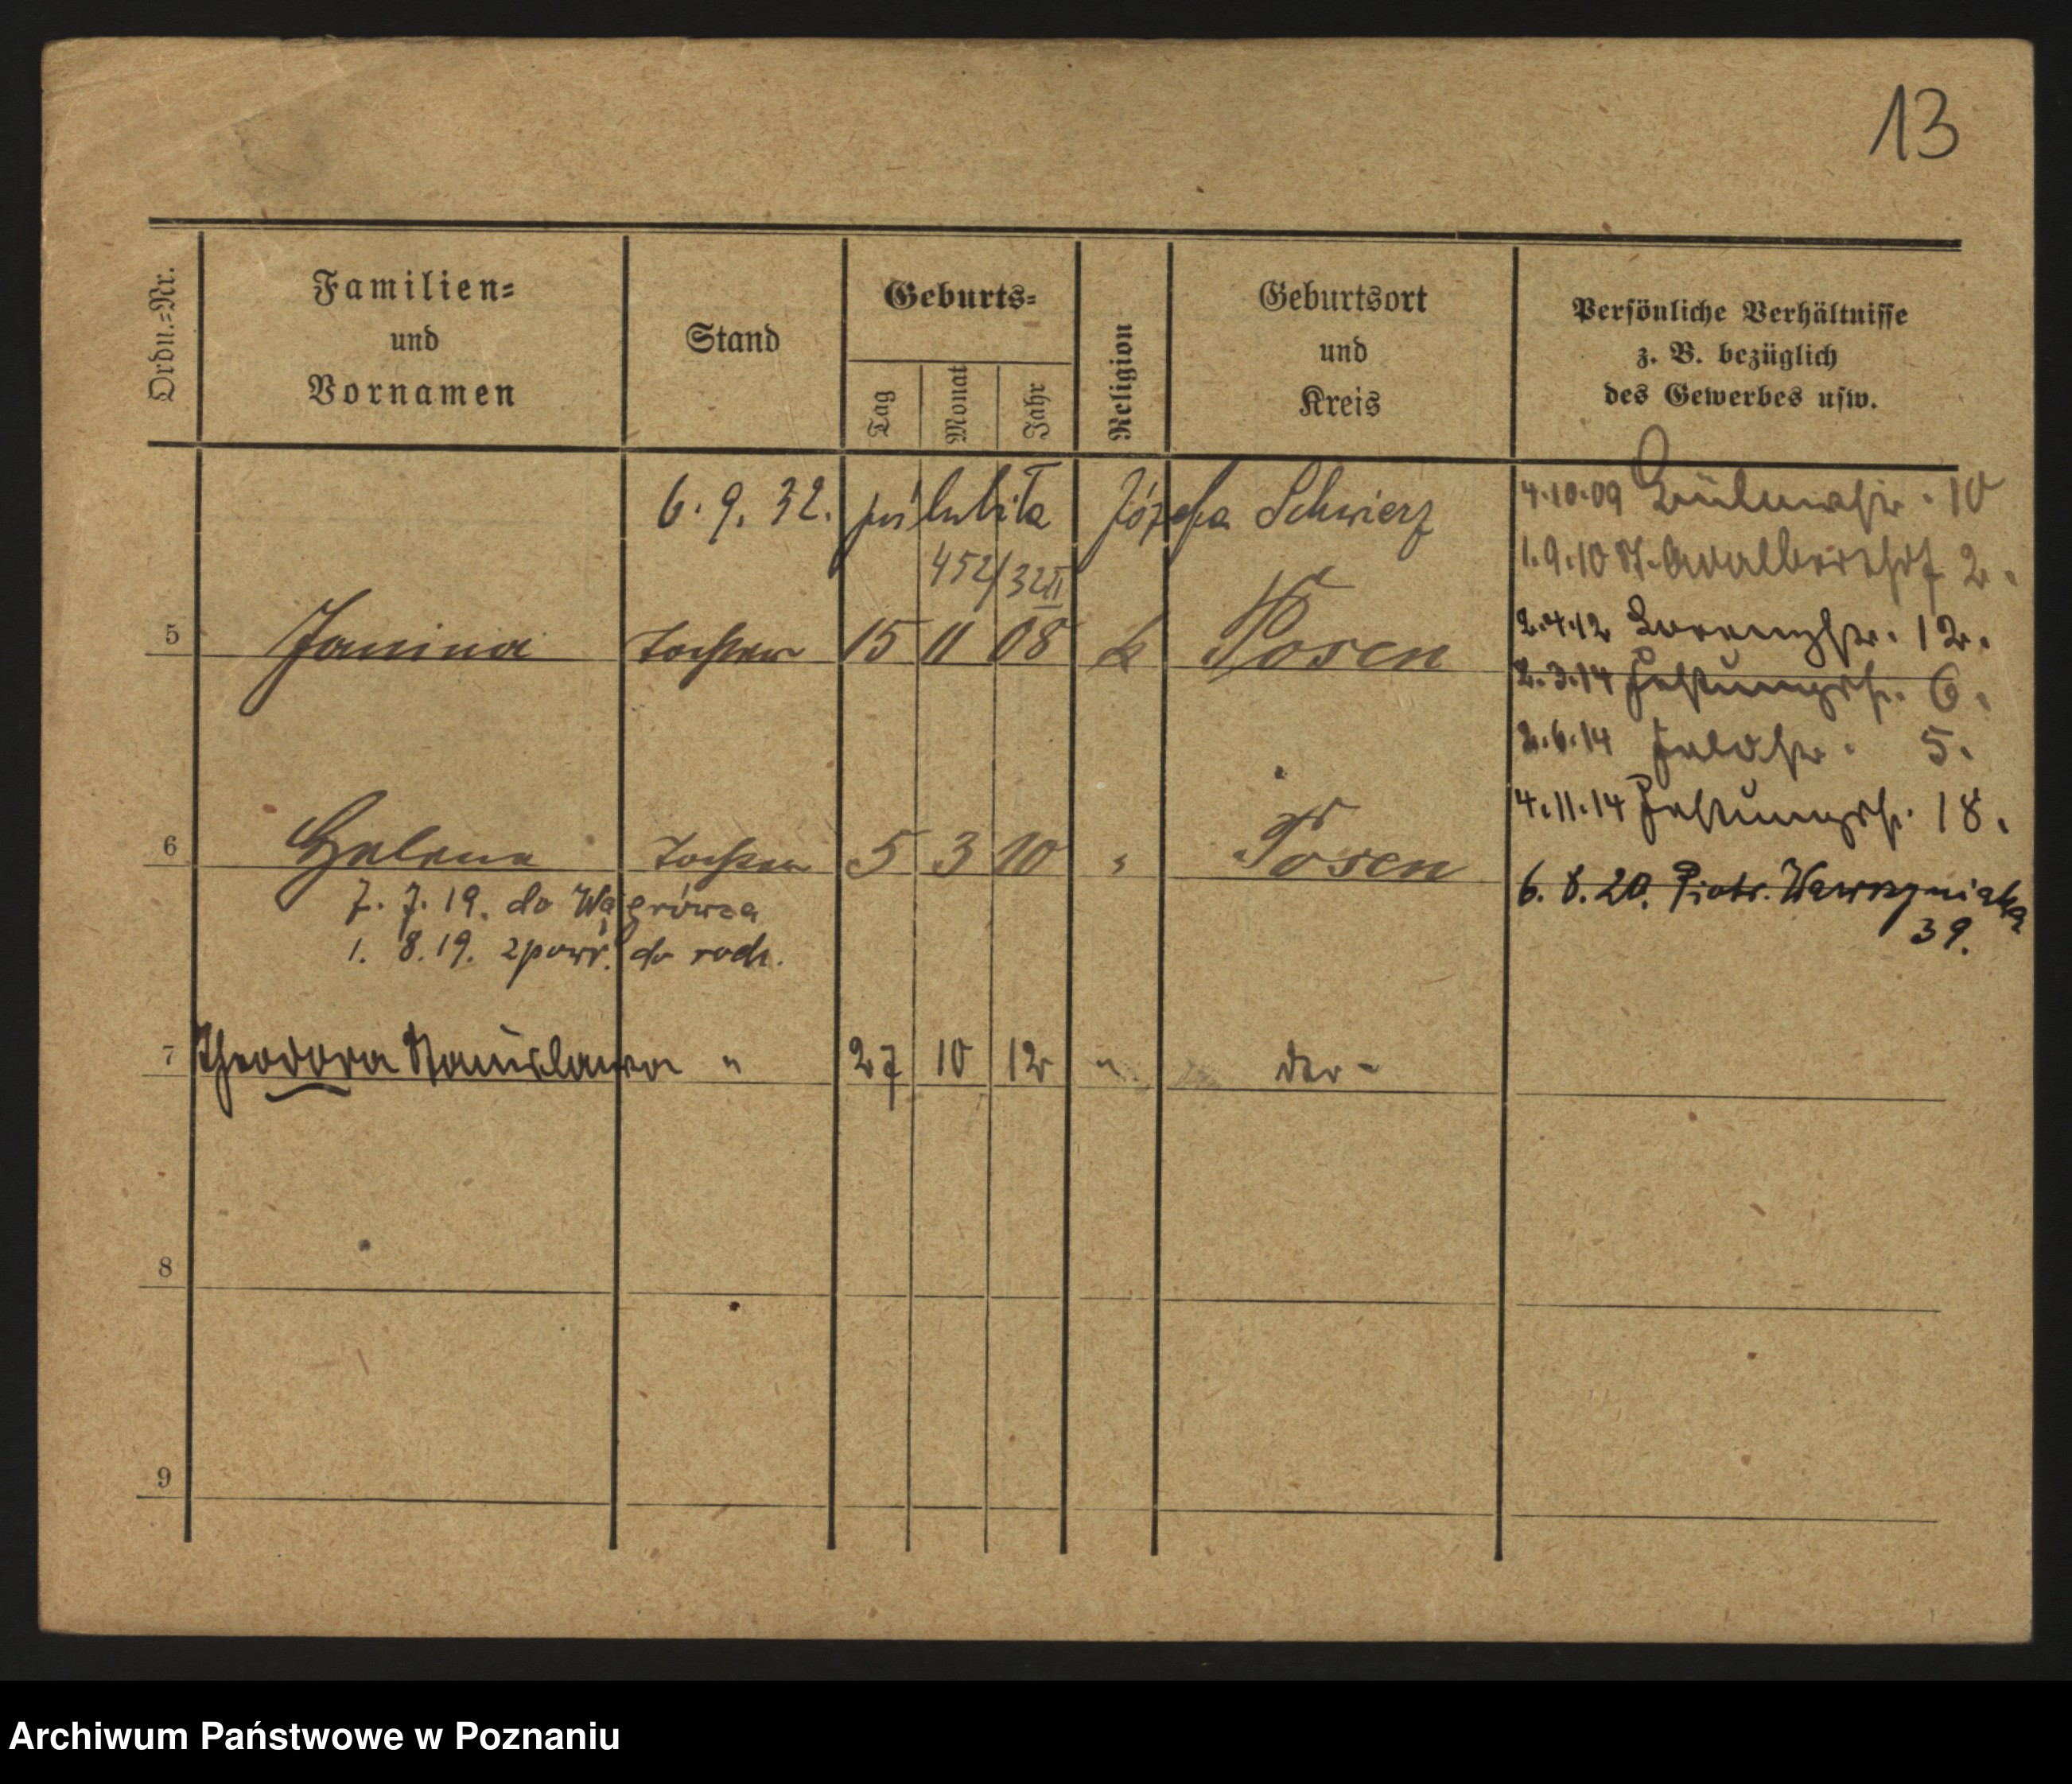 13
Ordn.-Nr.
Familien-
und
Vornamen
Stand
Geburts-
Tag
Monat
Jahr
Religion
Geburtsort
und
Kreis
Persönliche Verhältnisse
z. B. bezüglich
des Gewerbes usw.
6. 9. 32. poślubiła Józefa Schwierz
452/32 II
5 Janina Tochter 15 11 08 k Posen
6 Helena Tochter 5 3 10 " Posen
7. 7. 19. do Wągrówca
1. 8. 19. zpowr. do rodz.
7 Theodora Stanislawa " 27 10 12 " der-
8
9
4.10.09 10
1.9.10 St. Adalbertstr 2.
2.4.12 Lorenzstr. 12.
2.3.14 Festungsstr. 6.
2.6.14 Feldstr. 5.
4.11.14 Festungsstr. 18.
6. 8. 20. Piotr. Wawrzyniaka
39.
Archiwum Państwowe w Poznaniu